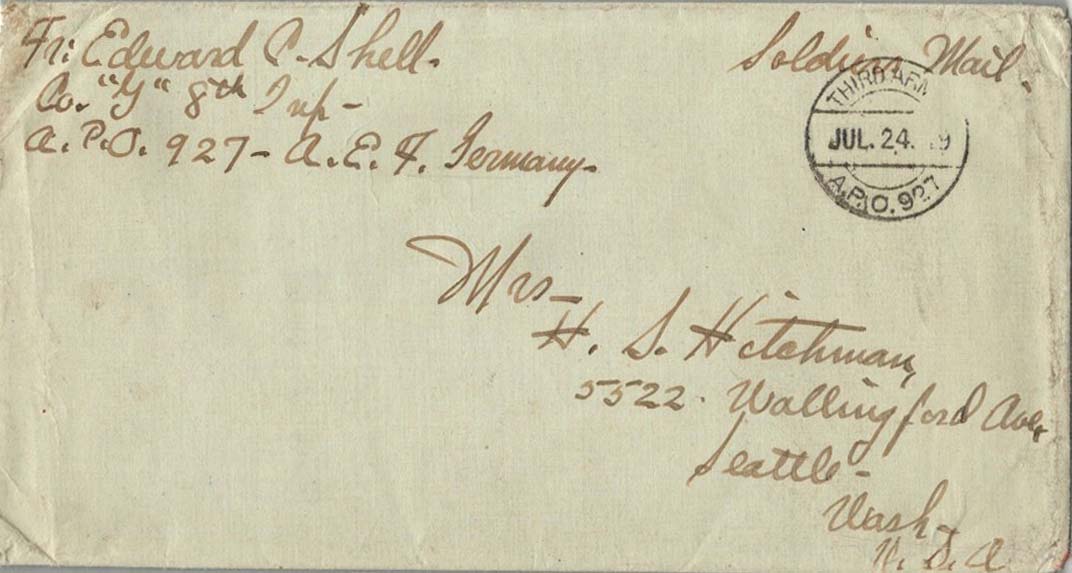 Fr: Edward C. Shell.
Co. "G" 8th Inf-
A.P.O. 927- A.E.F. Germany-
Soldiers Mail.
THIRD ARM
JUL. 24. 19
A.P.O. 927
Mrs-
H. S. Hitchman,
5522. Wallingford Ave,
Seattle-
Wash-
U.S.A